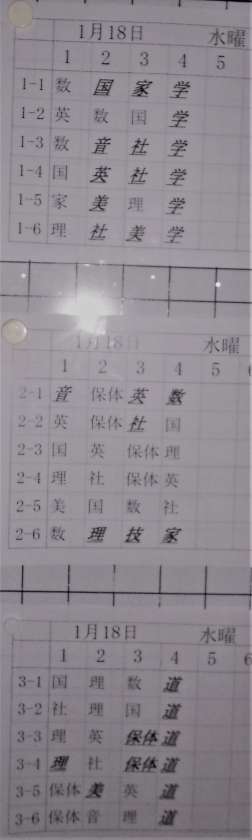 1月18日 水曜
1 2 3 4 5
1-1 数 国 家 学
1-2 英 数 国 学
1-3 数 音 社 学
1-4 国 英 社 学
1-5 家 美 理 学
1-6 理 社 美 学
1月18日 水曜
1 2 3 4 5 6
2-1 音 保体 英 数
2-2 英 保体 社 国
2-3 国 英 保体 理
2-4 理 社 保体 英
2-5 美 国 数 社
2-6 数 理 技 家
1月18日 水曜
1 2 3 4 5 6
3-1 国 理 数 道
3-2 社 理 国 道
3-3 理 英 保体 道
3-4 理 社 保体 道
3-5 保体 美 英 道
3-6 保体 音 理 道